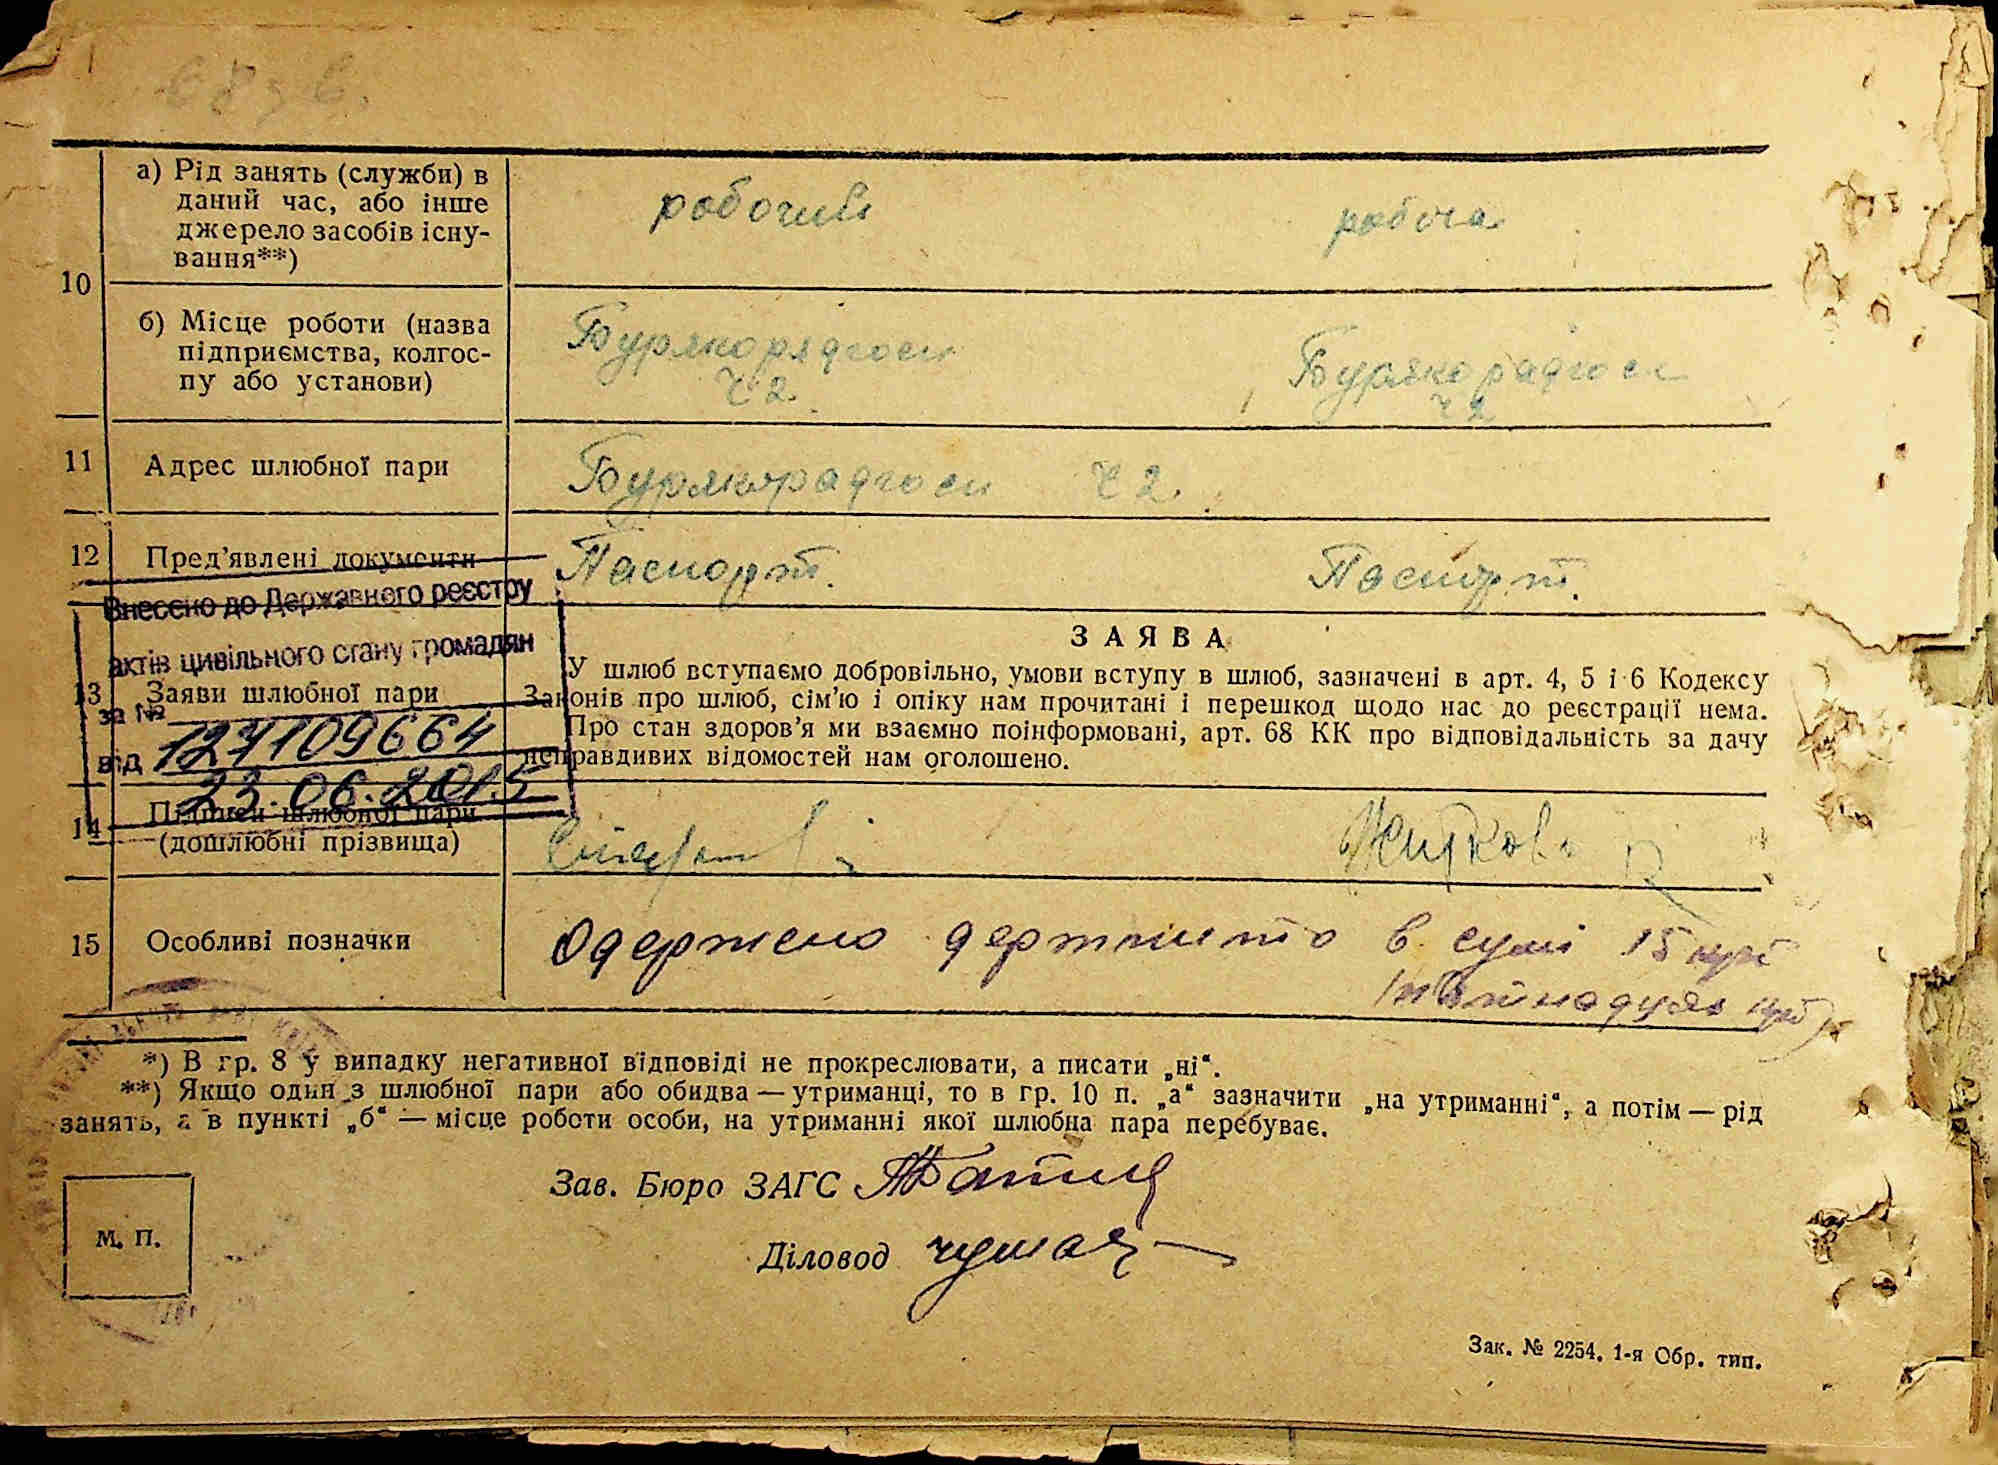 10
а) Рід занять (служби) в
даний час, або інше
джерело засобів існу-
вання**)
робочий
робоча
б) Місце роботи (назва
підприємства, колгос-
пу або установи)
Бурякорядгосп
Ч 2.
Бурякорадгосп
Ч 2
11
Адрес шлюбної пари
Бурякорадгосп Ч 2.
12
Пред'явлені документи
Паспорт.
Паспорт.
Внесено до Державного реєстру
актів цивільного стану громадян
за №
127109664
від
23.06.2015
13
Заяви шлюбної пари
ЗАЯВА
У шлюб вступаємо добровільно, умови вступу в шлюб, зазначені в арт. 4, 5 і 6 Кодексу
Законів про шлюб, сім'ю і опіку нам прочитані і перешкод щодо нас до реєстрації нема.
Про стан здоров'я ми взаємно поінформовані, арт. 68 КК про відповідальність за дачу
неправдивих відомостей нам оголошено.
14
Підписи шлюбної пари
(дошлюбні прізвища)
15
Особливі позначки
Одержено держмито в сумі 15 крб
*) В гр. 8 у випадку негативної відповіді не прокреслювати, а писати „ні“.
**) Якщо один з шлюбної пари або обидва — утриманці, то в гр. 10 п. „а“ зазначити „на утриманні“, а потім — рід
занять, а в пункті „б“ — місце роботи особи, на утриманні якої шлюбна пара перебуває.
Зав. Бюро ЗАГС
Діловод
М. П.
Зак. № 2254. 1-я Обр. тип.